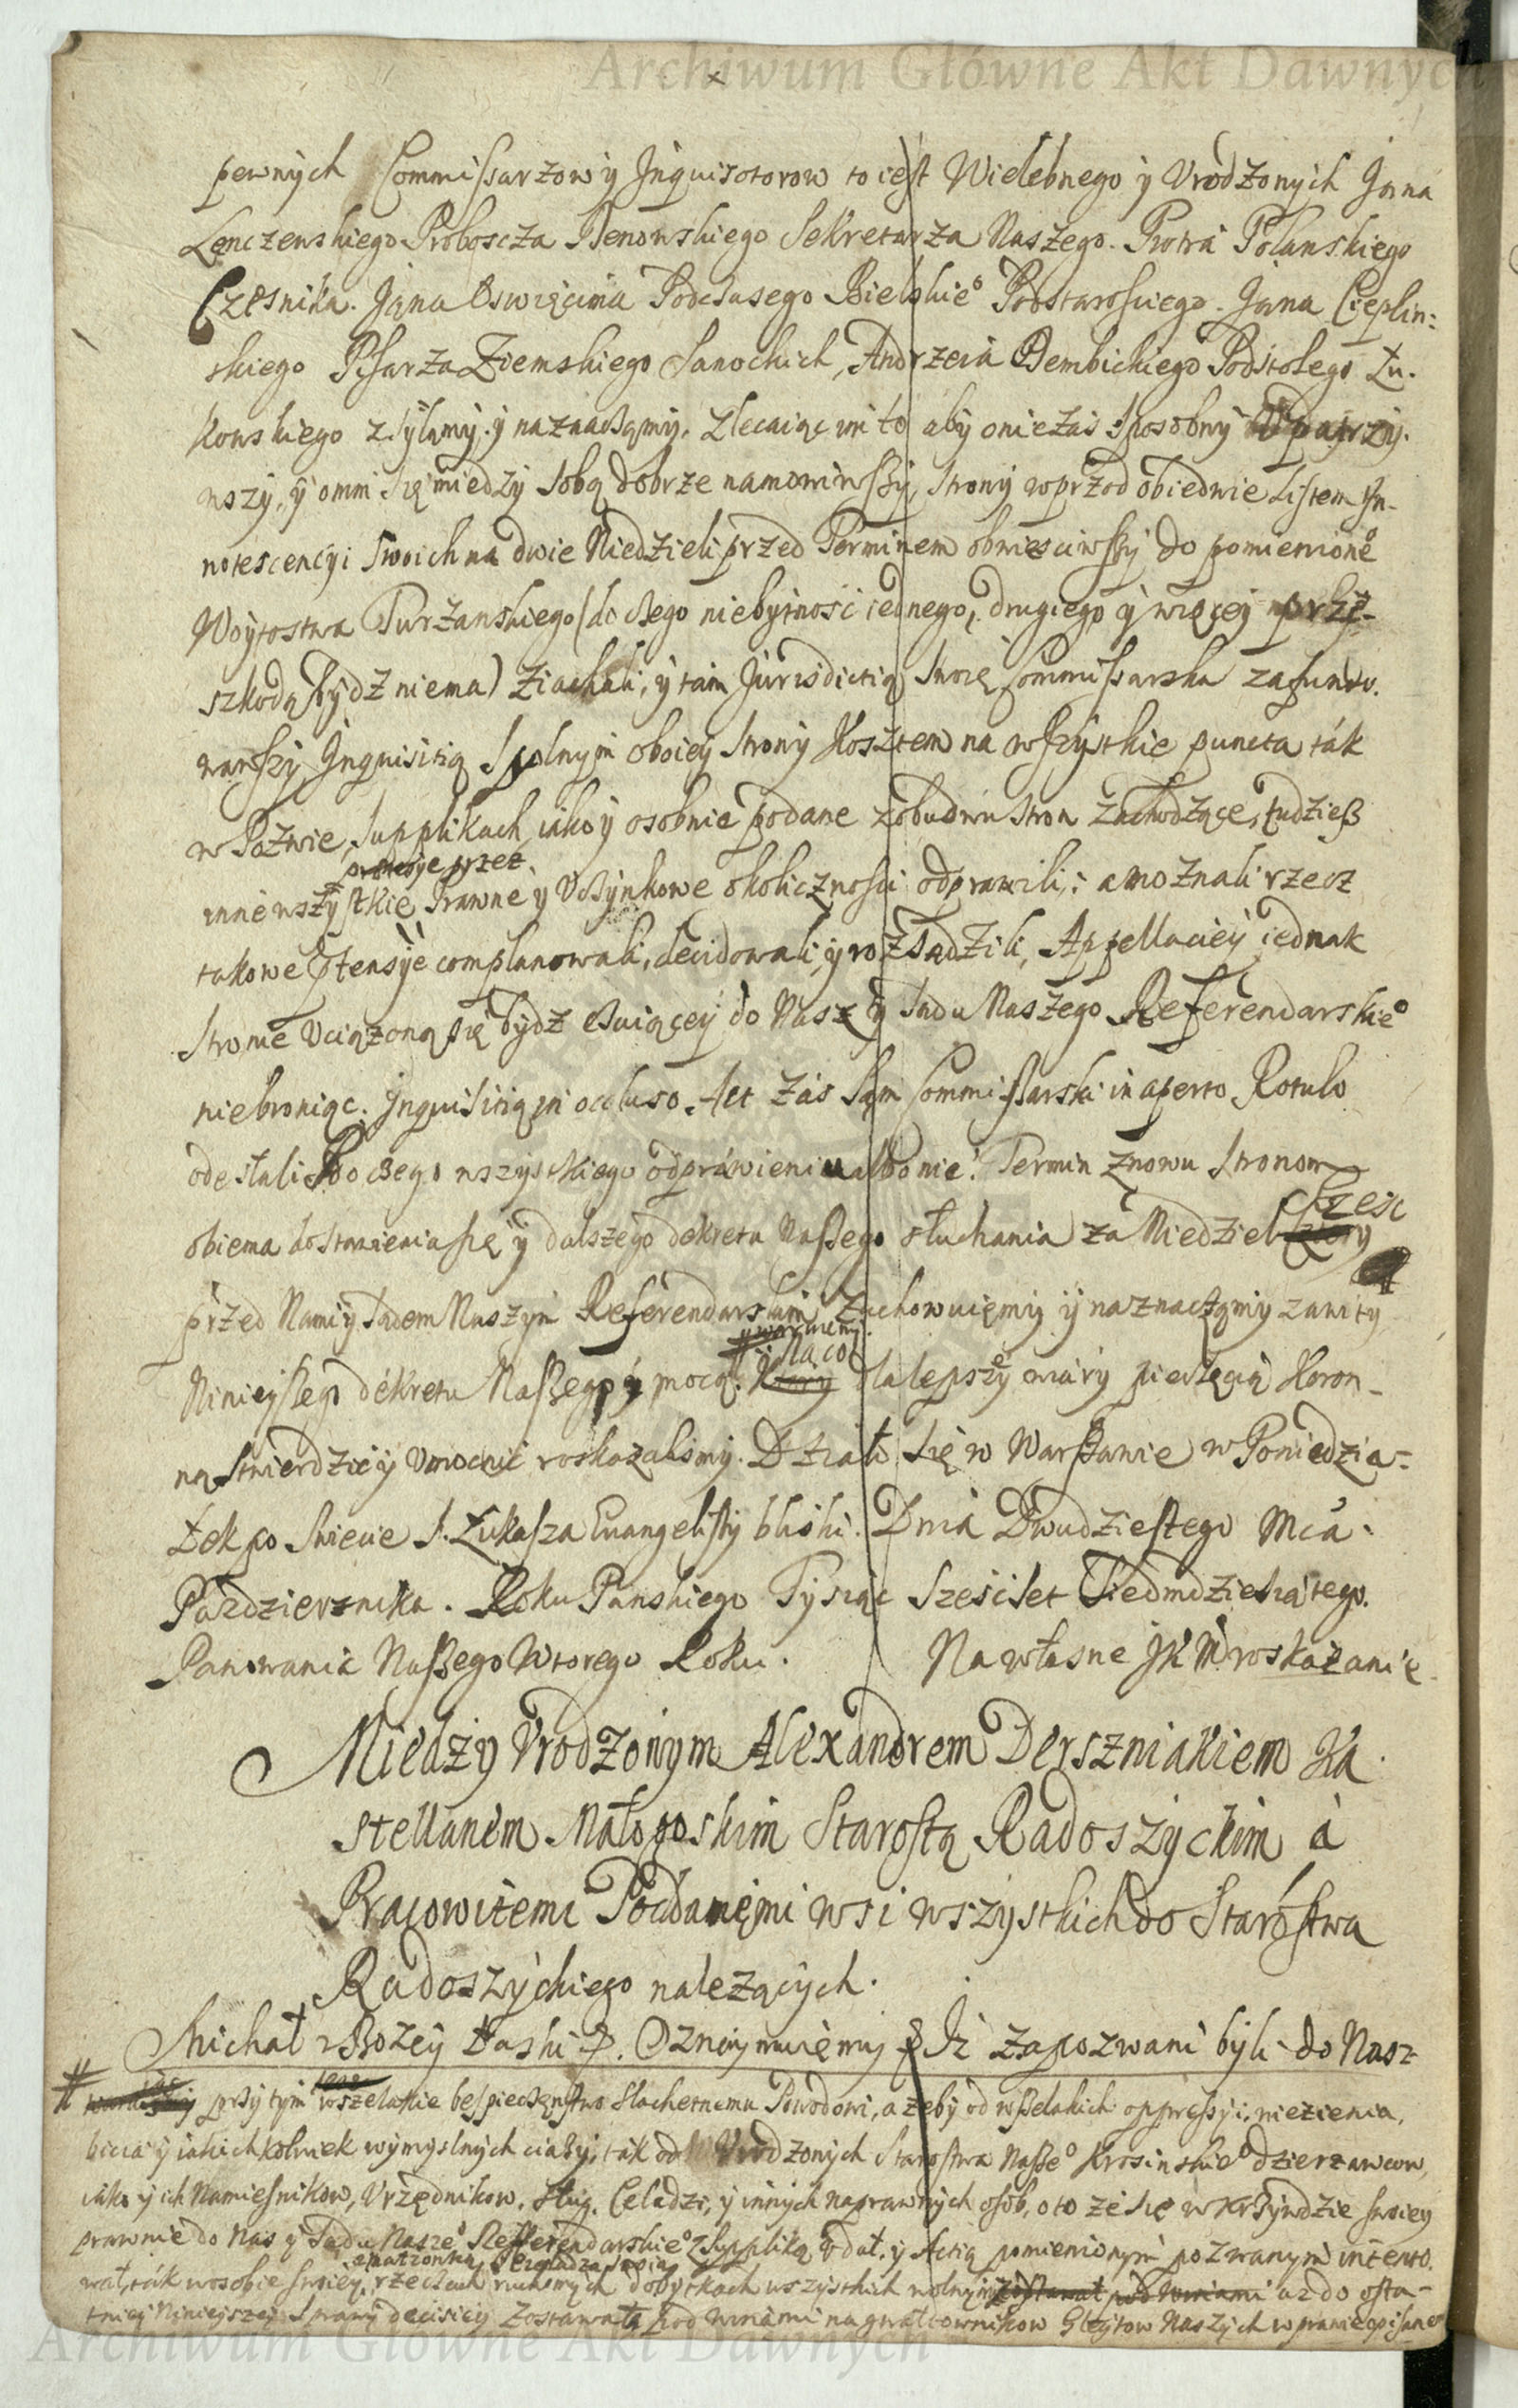 Archiwum Główne Akt Dawnych
pewnych Commissarzow y Inquisotorow to iest Wielebnego y Vrodzonych Jana
Lenczewskiego Proboscza Sekretarza Naszego. Piotra Polanskiego
Czesnika. Jana Oswięcima Podczasego Bielskie° Podstarosciego. Jana Cieplin:
skiego Pisarza Ziemskiego Sanockich, Andrzeia Dembickiego Podstolego Łu.
kowskiego zsyłamy y naznaczamy. Zlecaiąc im to aby oni czas sposobny vpatrzy.
wszy, y omni się miedzy sobą dobrze namowiwszy, strony wprzod obiedwie Listem In-
notescencyi swoich na dwie Niedzieli przed Terminem obwiesciwszy do pomienione°
Woytostwa Turzanskiego (do czego niebytnosc iednego, drugiego y więcey przé-
szkodą bydz niema) ziachali, y tam Jurisdictią swoię Commissarska zafundo.
wawszy Inquisitią spolnym oboiey strony Kosztem na wszystkie puncta ták
w Pozwie, Supplikach iako y osobnie podane z obudwu stron zachodzące, tudziesz
przez
inne wszystkie Prawne y Vczynkowe okolicznosci odprawili, a możnali rzecz
takowe Ptensye complanowali, decidowali, y rozsądzili, Appellaciey iednak
stronie vciązoną się bydz czuiącey do Nas y Sadu Naszego Referendarskie°
niebroniąc. Inquisitią in occluso. Act zas sam Commissarski in aperto Rotulo
odesłali Po czego wszystkiego odprawieniu albo nie. Termin znowu stronom
szesc
obiema do stawienia się y dalszego dekretu Naszego słuchania za Niedziel
przed Nami y Sadem Naszym Referendarskim zachowuięmy y naznaczamy zawity
Na co
Ninieyszego dekretu Naszego y mocą. dla lepszey wiáry pieczęcią Koron-
ną stwierdzic y vmocnic roskazalismy. Działo się w Warszawie w Poniedzia-
łek po Swiecie S. Łukasza Euangelisty bliski. Dnia Dwudziestego Mca.
Pazdziernika. Roku Panskiego Tysiąc Szescset Siedmdziesiątego.
Panowania Naszego Wtorego Roku. Na własne JKM roskazanie
Między Vrodzonym Alexandrem Derszniakiem Ka
stellanem Małogoskim Starostą Radoszyckim á
Pracowitemi Poddanęmi wsi wszystkich do Starostwa
Radoszyckiego nalezących.
Michał z Bozey Łaski P. Oznaymuięmy Iż zapozwani byli do Nasz
przy tym wszelakie bespieczęnstwo Slachetnemu Powodowi, a żeby od wszelakich oppressyi, więzienia,
bicia y iakichkolwiek wymyslnych ciaży, ták od Vrodzonych Starostwa Nasze° Krosinskie° dzierzawcow,
iako y ich Namiesnikow, Vrzędnikow, sług, Celadzi, y innych naprawnych osob, o to że się w krzywdzie swoiey
prawnie do Nas y Sądu Nasze° Refferendarskie° z Suppliką vdał, y Actią pomienionym pozwanym intento.
z małzonką czeladzą swoią
wał, ták w osobie swoiey, rzeczach ruchomych dobytkach wszystkich wolnym az do osta-
tniey Ninieyszey Sprawy decisiey zostawała pod winámi na gwałtownikow Gleytow Naszych w prawie opisane
Archiwum Główne Akt Dawnych